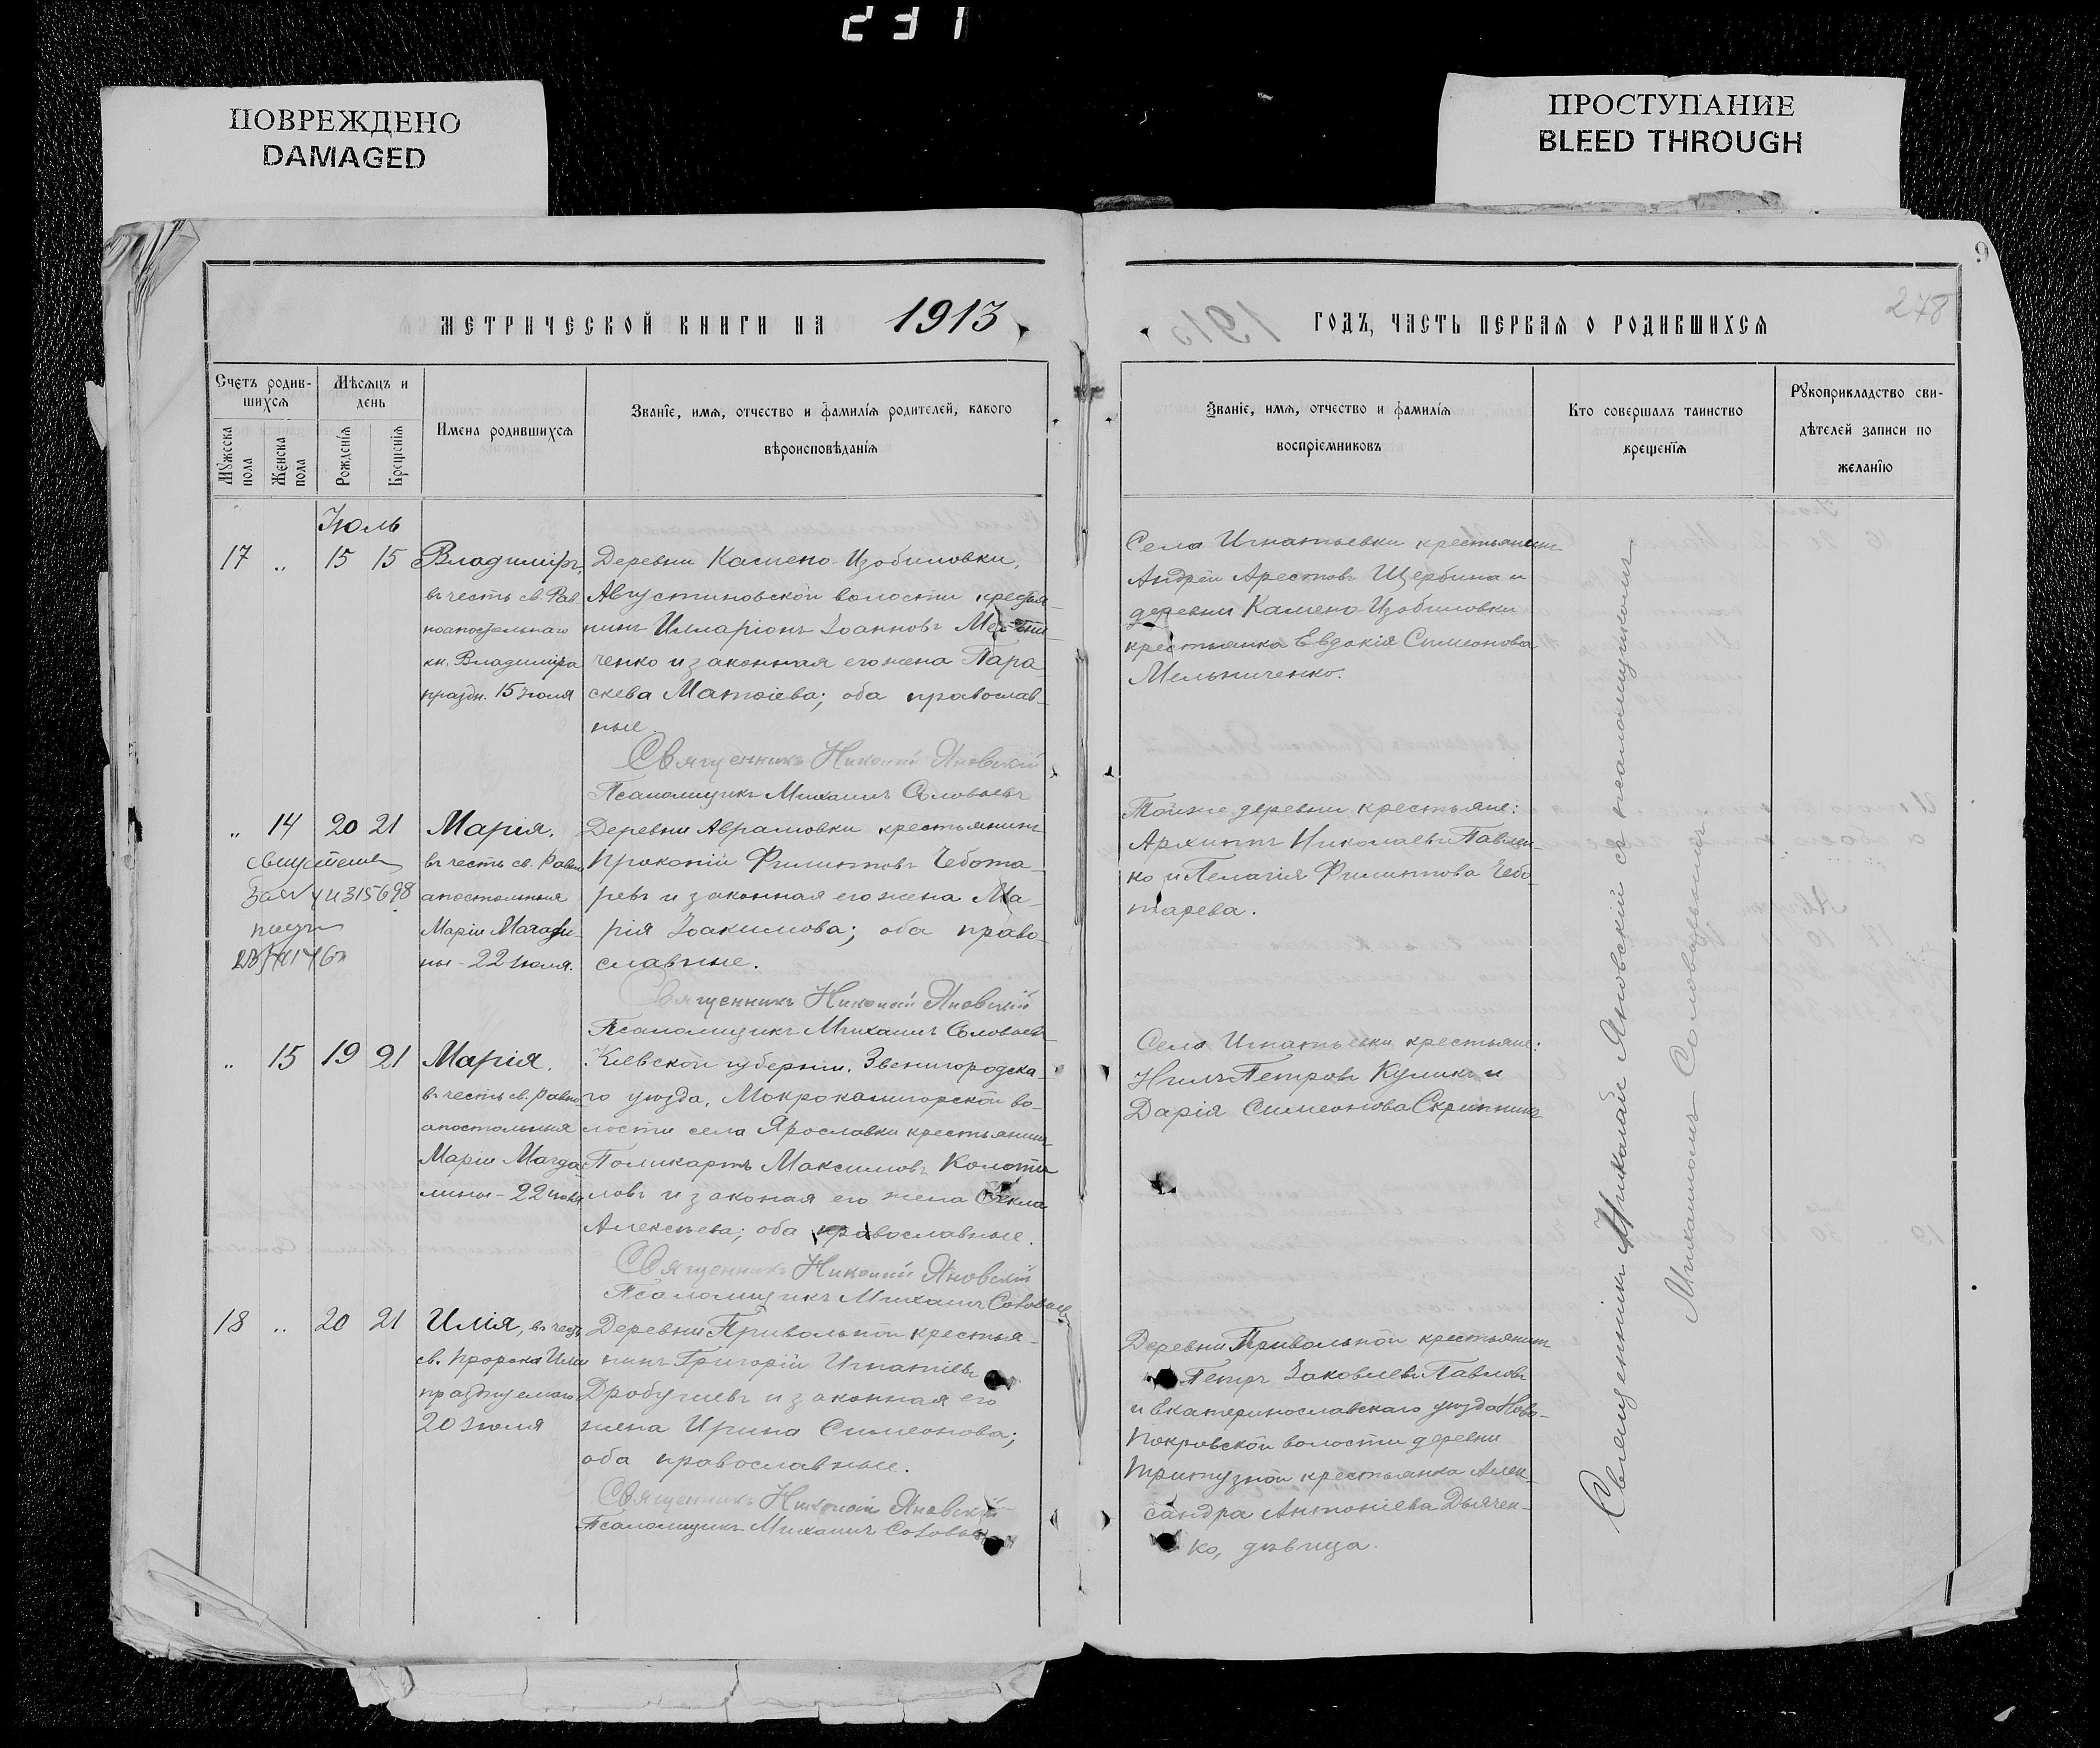 231
ПОВРЕЖДЕНО
DAMAGED
ПРОСТУПАНИЕ
BLEED THROUGH
9
278
МЕТРИЧЕСКОЙ КНИГИ НА 1913
ГОДЪ, ЧАСТЬ ПЕРВАЯ О РОДИВШИХСЯ
Счетъ родив-
шихся
Мужеска пола
Женска пола
Мѣсяцъ и
день
Рожденія
Крещенія
Имена родившихся
Званіе, имя, отчество и фамилія родителей, какого
вѣроисповѣданія
Званіе, имя, отчество и фамилія
воспріемниковъ
Кто совершалъ таинство
крещенія
Рукоприкладство сви-
дѣтелей записи по
желанію
Іюль
17 „ 15 15
Владиміръ,
въ честь св. Рав
ноапостольнаго
кн. Владиміра
праздн. 15 іюля
Деревни Камено-Изобиловки,
Августиновской волости крестья-
нинъ Илларіонъ Іоанновъ
ченко и законная его жена Пара-
скева Матѳіева; оба православ-
ные.
Священникъ Николай Яновскій
Псаломщикъ Михаилъ Соловьевъ
Села Игнатьевки крестьянинъ
Андрей Арестовъ Щербина и
деревни Камено-Изобиловки
крестьянка Евдокія Симеонова
Мельниченко.
„ 14 20 21
Марія,
въ честь св. Равно
апостольныя
Маріи Магдали-
ны - 22 іюля.
Деревни Аврамовки крестьянинъ
Прокопій Филипповъ Чебота-
ревъ и законная его жена Ма-
рія Іоакимова; оба право-
славные.
Священникъ Николай Яновскій
Псаломщикъ Михаилъ Соловьевъ
Тойже деревни крестьяне:
Архиппъ Николаевъ Павлен-
ко и Пелагія Филиппова Чебо-
тарева.
„ 15 19 21
Марія,
въ честь св. Равно-
апостольныя
Маріи Магда-
лины - 22 іюля
Кіевской губерніи, Звенигородска-
го уѣзда, Мокрокалигорской во-
лости села Ярославки крестьянинъ
Поликарпъ Максимовъ Колоти
ловъ и законая его жена Ѳекла
Алексѣева; оба православные.
Священникъ Николай Яновскій
Псаломщикъ Михаилъ Соловьевъ
Села Игнатьевки крестьяне:
Нилъ Петровъ Куликъ и
Дарія Симеонова
18 „ 20 21
Илія, въ честь
св. пророка Иліи
празднуемаго
20 іюля
Деревни Привольной крестья-
нинъ Григорій Игнатіевъ
и законная его
жена Ирина Симеонова;
оба православные.
Священникъ Николай Яновскій
Псаломщикъ Михаилъ Соловьевъ
Деревни Привольной крестьянинъ
Петръ Іаковлевъ Павловъ
и Екатеринославскаго уѣзда Ново-
Покровской волости деревни
крестьянка Алек-
сандра Антоніева Дьячен-
ко, дѣвица.
Священникъ Николай Яновскій съ псаломщикомъ
Михаиломъ Соловьевымъ.